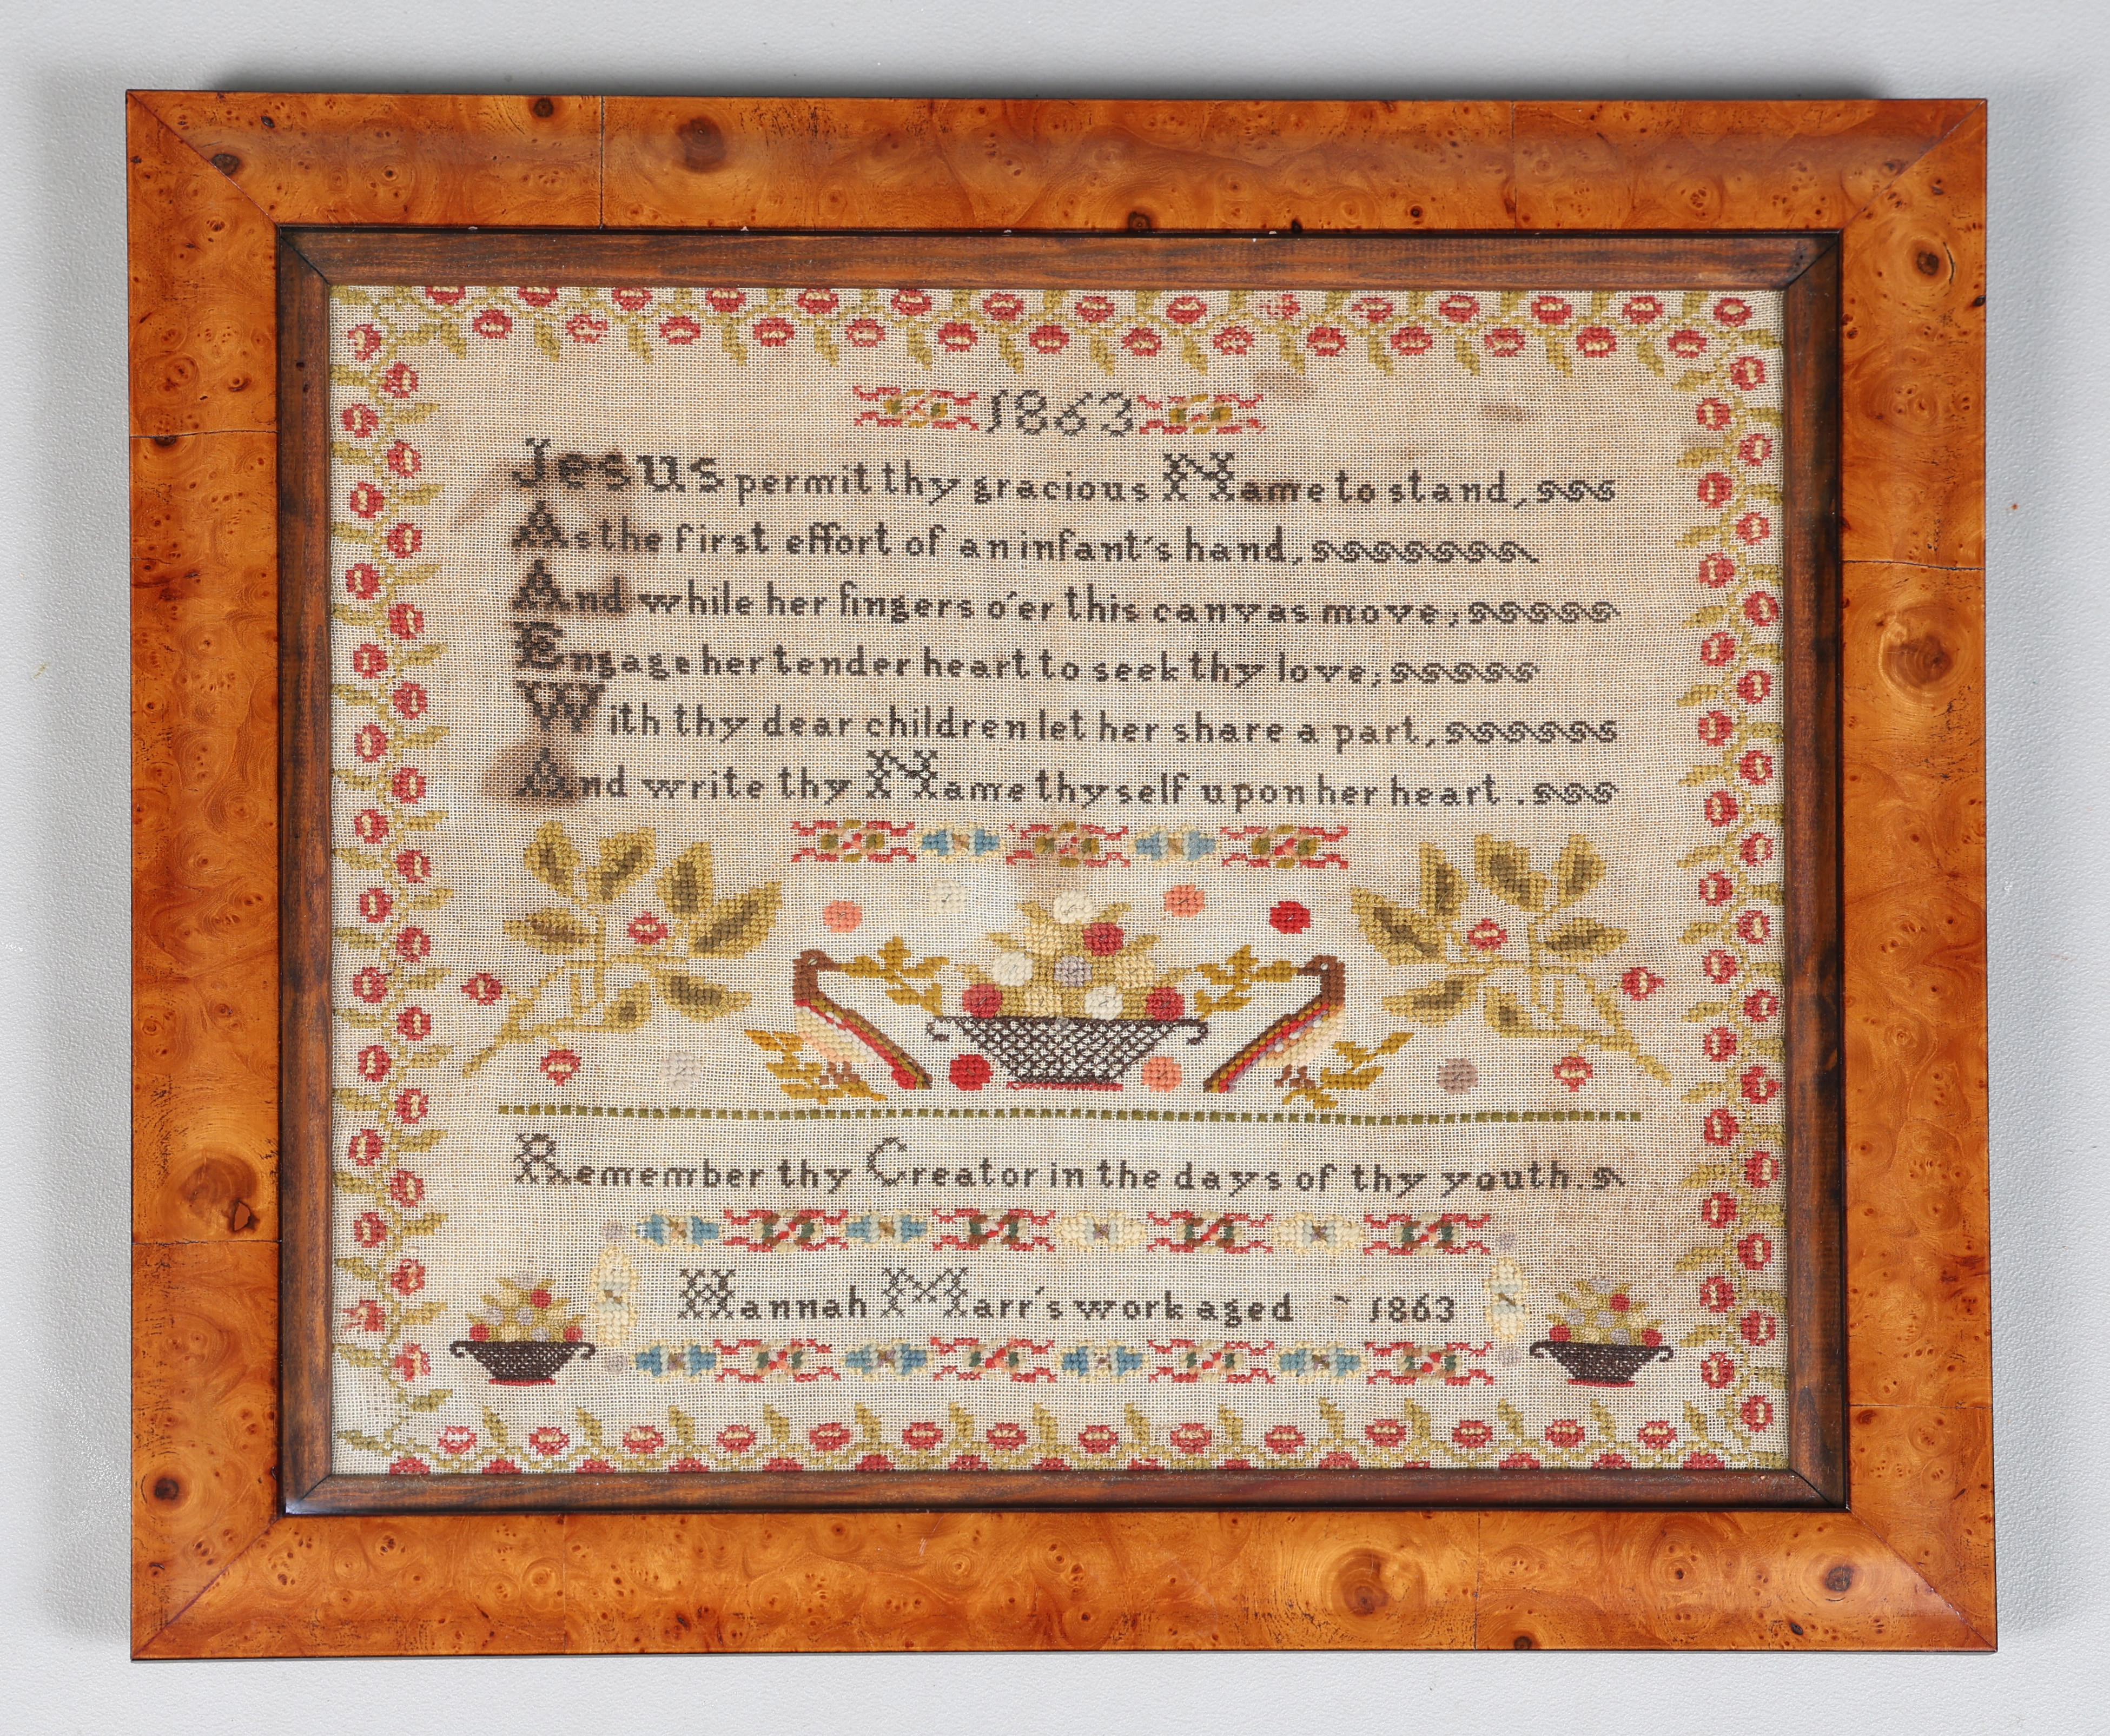 1863
Jesus permit thy gracious Name to stand,
As the first effort of an infant's hand,
And while her fingers o'er this canvas move;
Engage her tender heart to seek thy love;
With thy dear children let her share a part,
And write thy Name thyself upon her heart.
Remember thy Creator in the days of thy youth.
Hannah Marr's work aged 1863